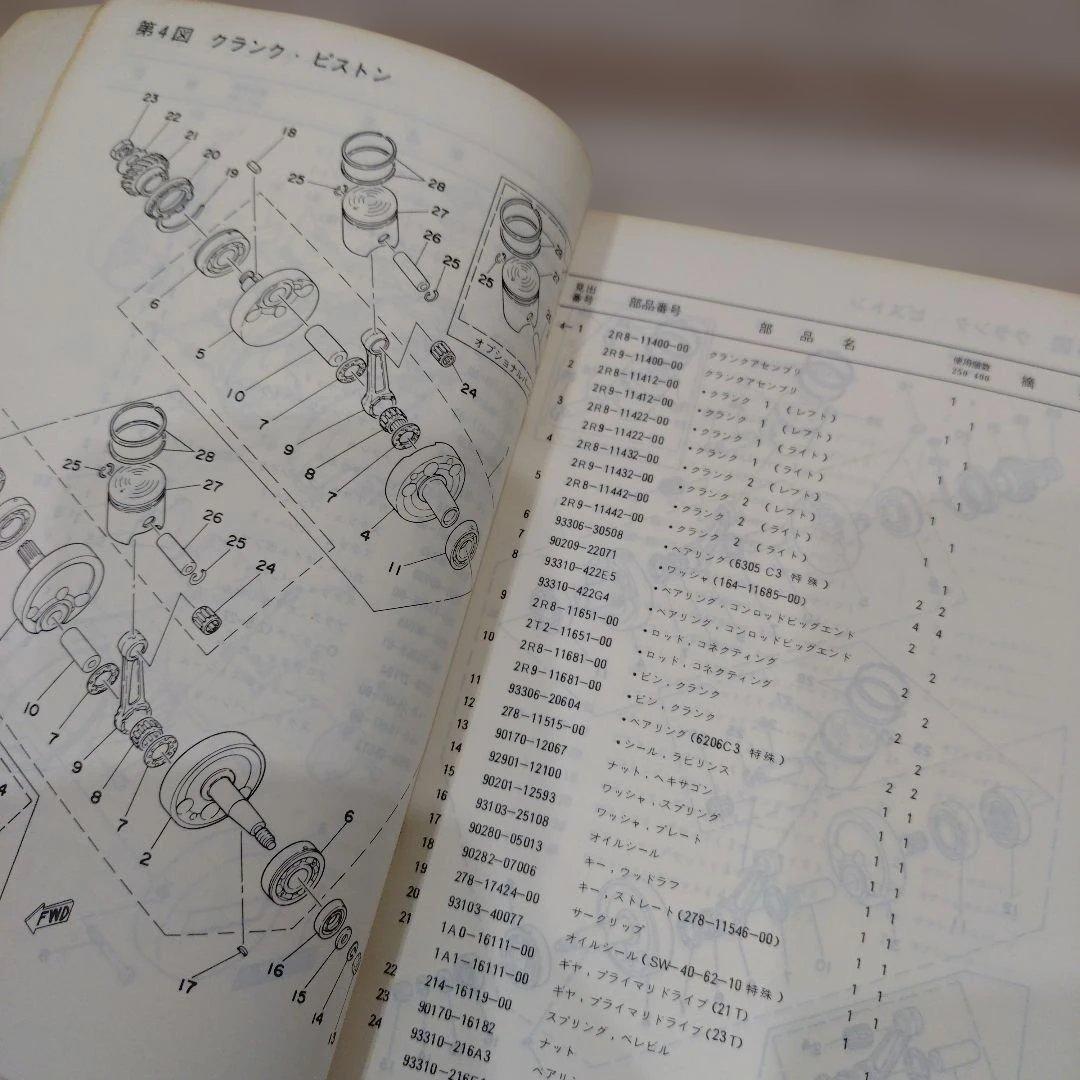 第4図 クランク・ピストン
23
22
21
20
19
18
25
28
27
26
25
6
5
10
7
9
8
7
24
4
11
25
28
オプショナルパ
25
28
27
26
25
24
10
7
9
8
7
2
6
17
16
15
14
13
FWD
見出番号 部品番号 部品名 使用個数 250 400 摘
4-1 2R8-11400-00 クランクアセンブリ 1
2R9-11400-00 クランクアセンブリ 1
2 2R8-11412-00 ・クランク 1 (レフト) 1
2R9-11412-00 ・クランク 1 (レフト) 1
3 2R8-11422-00 ・クランク 1 (ライト) 1
2R9-11422-00 ・クランク 1 (ライト) 1
4 2R8-11432-00 ・クランク 2 (レフト) 1
2R9-11432-00 ・クランク 2 (レフト) 1
5 2R8-11442-00 ・クランク 2 (ライト) 1
2R9-11442-00 ・クランク 2 (ライト) 1
6 93306-30508 ・ベアリング(6305 C3 特殊) 2 2
7 90209-22071 ・ワッシャ(164-11685-00) 4 4
8 93310-422E5 ・ベアリング,コンロッドビッグエンド 2
93310-422G4 ・ベアリング,コンロッドビッグエンド 2
9 2R8-11651-00 ・ロッド,コネクティング 2
2T2-11651-00 ・ロッド,コネクティング 2
10 2R8-11681-00 ・ピン,クランク 2
2R9-11681-00 ・ピン,クランク 2
11 93306-20604 ・ベアリング(6206C3 特殊) 2 2
12 278-11515-00 ・シール,ラビリンス 1 1
13 90170-12067 ナット,ヘキサゴン 1 1
14 92901-12100 ワッシャ,スプリング 1 1
15 90201-12593 ワッシャ,プレート 1 1
16 93103-25108 オイルシール 1 1
17 90280-05013 キー,ウッドラフ 1 1
18 90282-07006 キー,ストレート(278-11546-00) 1 1
19 278-17424-00 サークリップ 1 1
20 93103-40077 オイルシール(SW-40-62-10 特殊) 1 1
21 1A0-16111-00 ギヤ,プライマリドライブ(21T) 1
1A1-16111-00 ギヤ,プライマリドライブ(23T) 1
22 214-16119-00 スプリング,ベレビル
23 90170-16182 ナット
24 93310-216A3